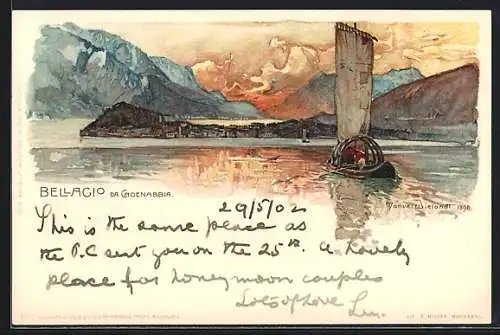 BELLAGIO DA CADENABBIA.
Manuel Wielandt 1898.
29/5/02
This is the same place as
the P.C sent you on the 25th. A lovely
place for honeymoon couples
Lots of love